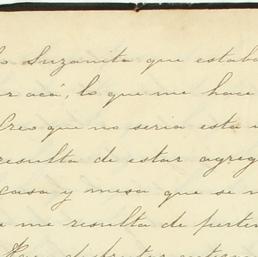 Suzanita que estaba
r acá, lo que me hace
Creo que no seria esta
resulta de estar agreg
casa y mesa que se
me resulta de perten